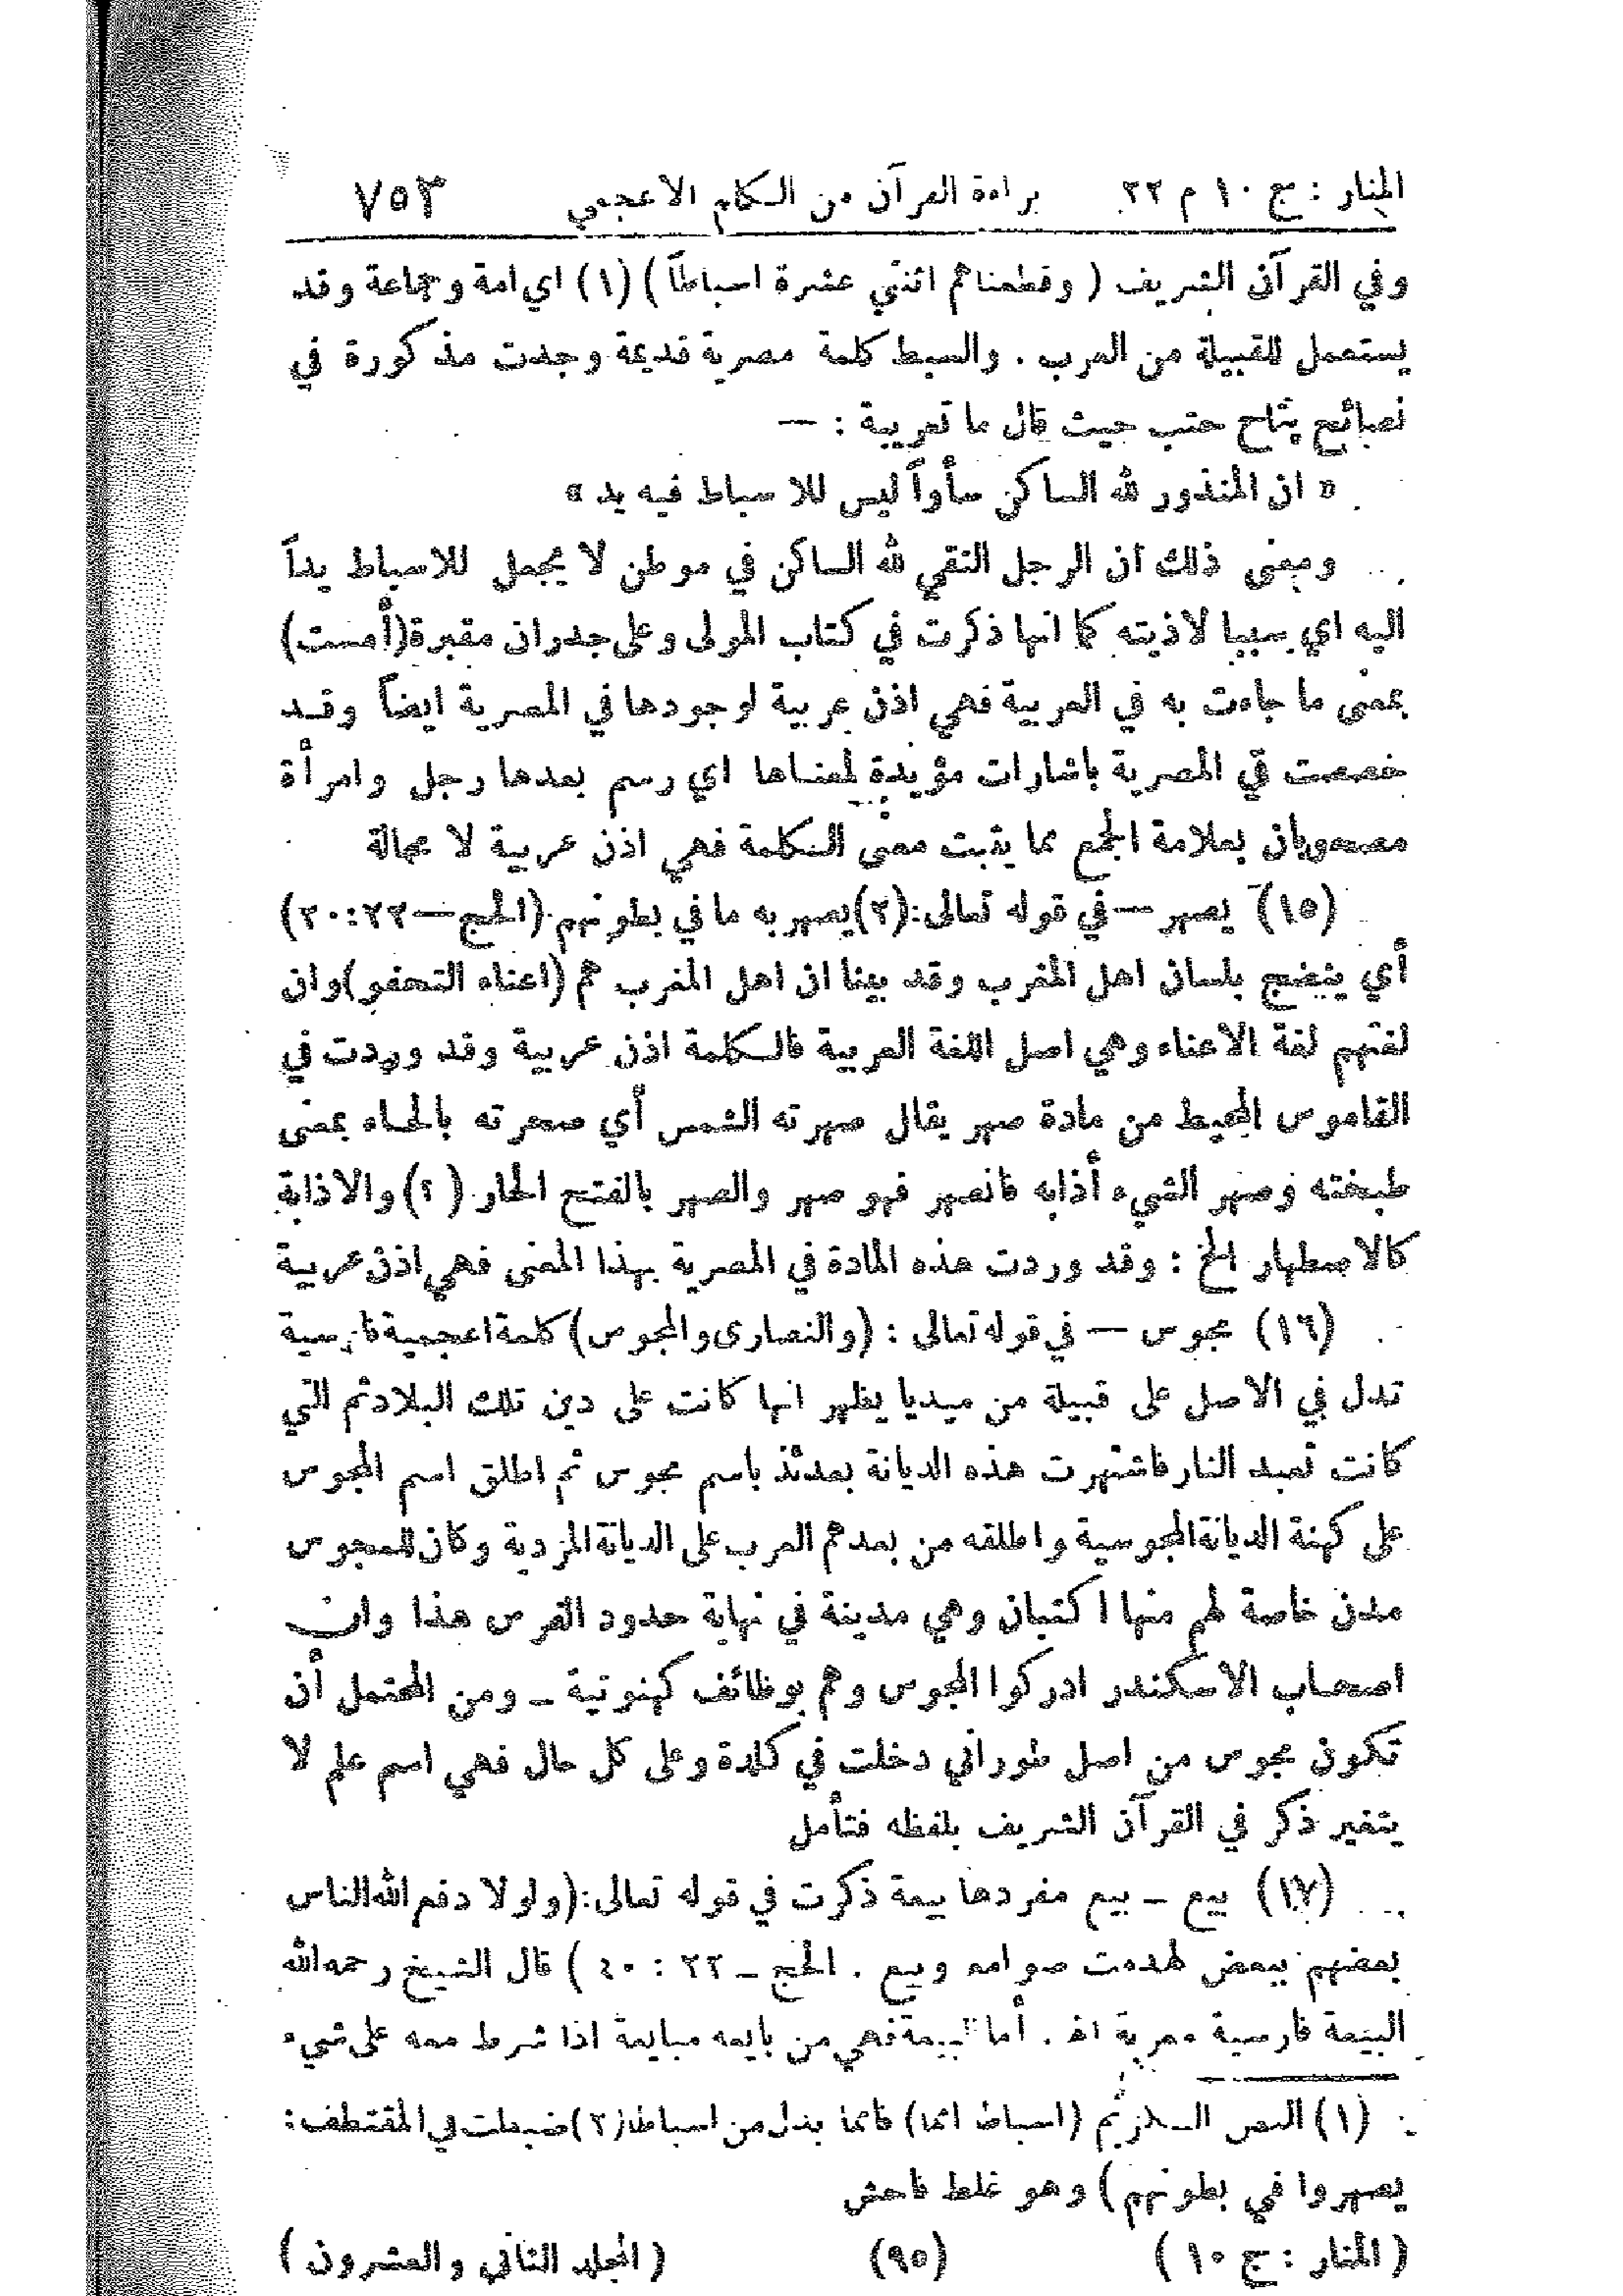 المنار : ج ١٠ م ٢٢ براءة القرآن من الكلام الاعجمي ٧٥٣
وفي القرآن الشريف ( وقطعناهم اثنتي عشرة اسباطاً ) (١) اي امة وجماعة وقد
يستعمل للقبيلة من العرب . والسبط كلمة مصرية قديمة وجدت مذكورة في
نصائح پتاح حتب حيث قال ما تعريبة : —
« ان المنذور لله الساكن سأواً ليس للاسباط فيه يد »
ومعنى ذلك ان الرجل التقي لله الساكن في موطن لا يجعل للاسباط يداً
اليه اي سببا لاذيته كما انها ذكرت في كتاب المولى وعلى جدران مقبرة (أمست)
بمعنى ما جاءت به في العربية فهي اذن عربية لوجودها في المصرية ايضاً وقد
خصصت في المصرية باشارات مؤيدة لمعناها اي رسم بعدها رجل وامرأة
مصحوبان بعلامة الجمع مما يثبت معنى الكلمة فهي اذن عربية لا محالة
(١٥) يصهر — في قوله تعالى : (٢) يصهر به ما في بطونهم (الحج — ٢٢ : ٢٠)
أي ينضج بلسان اهل المغرب وقد بينا ان اهل المغرب هم (اعناء التحفو) وان
لغتهم لغة الاعناء وهي اصل اللغة العربية فالكلمة اذن عربية وقد وردت في
القاموس المحيط من مادة صهر يقال صهرته الشمس أي صحرته بالحاء بمعنى
طبخته وصهر الشيء أذابه فانصهر فهو صهر والصهر بالفتح الحار (؟) والاذابة
كالاصطهار الخ : وقد وردت هذه المادة في المصرية بهذا المعنى فهي اذن عربية
(١٦) مجوس — في قوله تعالى : (والنصارى والمجوس) كلمة اعجمية فارسية
تدل في الاصل على قبيلة من ميديا يظهر انها كانت على دين تلك البلاد ثم التي
كانت تعبد النار فاشتهرت هذه الديانة بعدئذ باسم مجوس ثم اطلق اسم المجوس
على كهنة الديانة المجوسية واطلقه من بعدهم العرب على الديانة المزدية وكان للمجوس
مدن خاصة لهم منها اكتبان وهي مدينة في نهاية حدود الفرس هذا وان
اصحاب الاسكندر ادركوا المجوس وهم بوظائف كهنوتية ـ ومن المحتمل أن
تكون مجوس من اصل طوراني دخلت في كلدة وعلى كل حال فهي اسم علم لا
يتغير ذكر في القرآن الشريف بلفظه فتأمل
(١٧) بيع ـ بيع مفردها بيعة ذكرت في قوله تعالى : (ولولا دفع الله الناس
بعضهم ببعض لهدمت صوامع وبيع . الحج ـ ٢٢ : ٤٠ ) قال الشيخ رحمه الله
البيعة فارسية معربة اهـ . أما البيعة فهي من بايعه مبايعة اذا شرط معه على شيء
(١) النص الكريم (اسباطا امما) فامما بدل من اسباطا (٢) ضبطت في المقتطف :
يصهروا في بطونهم) وهو غلط فاحش
( المنار : ج ١٠ ) (٩٥) ( المجلد الثاني والعشرون )